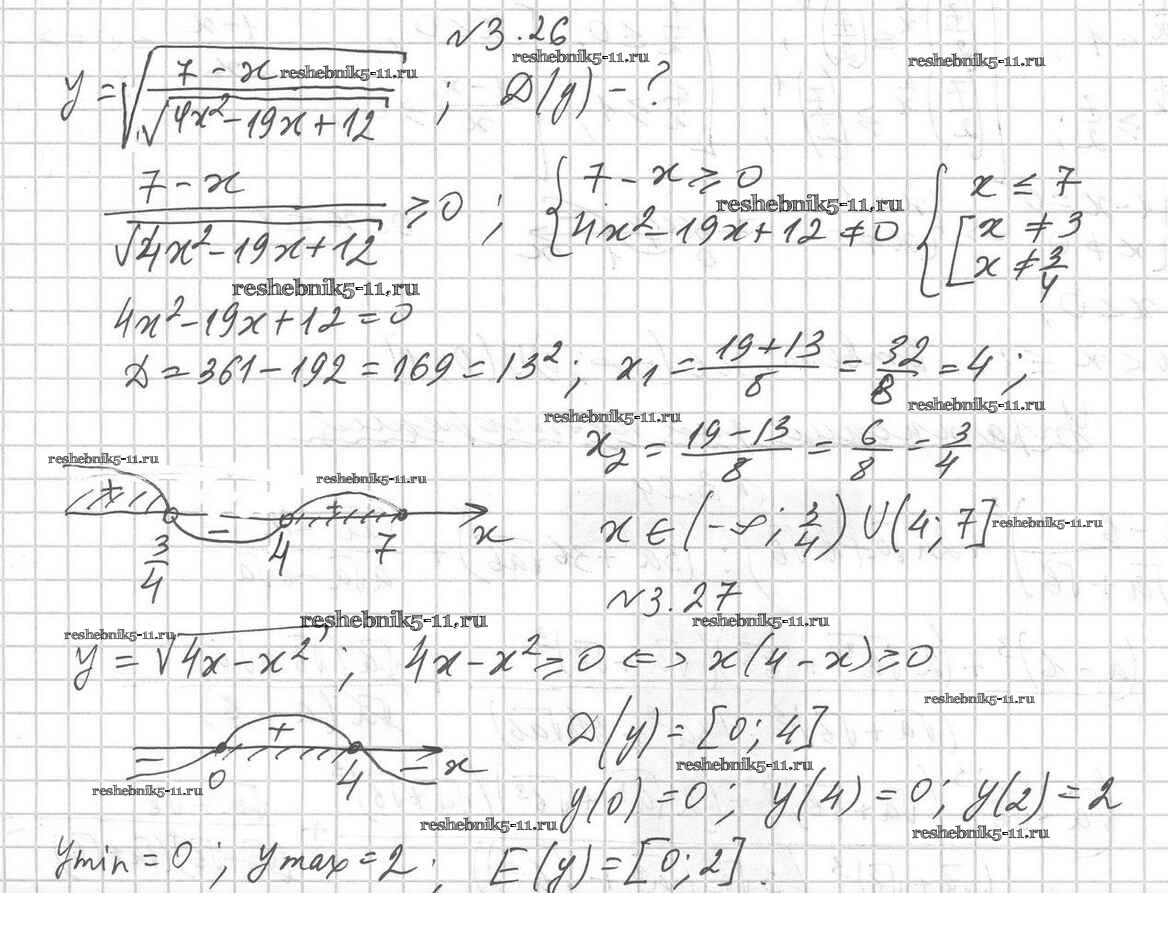 √3.26
reshebnik5-11.ru
reshebnik5-11.ru
y = √((7 - x)/√(4x² - 19x + 12)) ; D(y) - ?
reshebnik5-11.ru
(7 - x)/√(4x² - 19x + 12) ≥ 0 ; { 7 - x ≥ 0 { x ≤ 7
reshebnik5-11.ru
4x² - 19x + 12 ≠ 0 [ x ≠ 3
x ≠ 3/4
reshebnik5-11.ru
4x² - 19x + 12 = 0
D = 361 - 192 = 169 = 13² ; x1 = (19 + 13)/8 = 32/8 = 4 ;
reshebnik5-11.ru
reshebnik5-11.ru
x2 = (19 - 13)/8 = 6/8 = 3/4
reshebnik5-11.ru
reshebnik5-11.ru
+ - +
3/4 4 7 x
x ∈ (-∞; 3/4) ∪ (4; 7]
reshebnik5-11.ru
√3.27
reshebnik5-11.ru
reshebnik5-11.ru
reshebnik5-11.ru
y = √(4x - x²) ; 4x - x² ≥ 0 <=> x(4 - x) ≥ 0
reshebnik5-11.ru
- + -
0 4 x
D(y) = [0; 4]
reshebnik5-11.ru
reshebnik5-11.ru
y(0) = 0 ; y(4) = 0; y(2) = 2
reshebnik5-11.ru
reshebnik5-11.ru
ymin = 0 ; ymax = 2 ; E(y) = [0; 2].